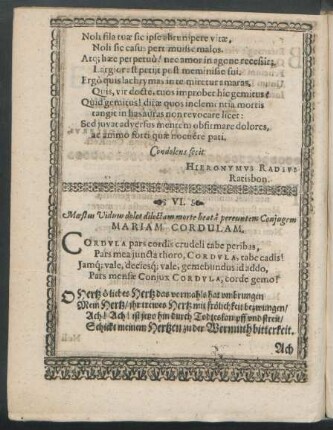 Noli fila tuæ sic ipse abrumpere vitæ,
Noli sic casu peri muisse malos.
Atq; hæc perpetuò? nec amor in agone recessit;
Largior est petijt pest meminisse sui.
Ergò quis lachrymas in te miretur amaras,
Quis, vir docte, tuos improbet hic gemitus?
Quid gemitus? ditæ quos inclementia mortis
tangit in has auras non revocare licet:
Sed juvat adversus mentem obfirmare dolores,
ac animo forti quæ nocuêre pati.
Condolens fecit
HIERONYMUS RADIUS
Ratisbon.
VI.
Mæstus Viduus dolet dilectam morte beatâ peremtam Conjugem
MARIAM CORDULAM.
CORDULA pars cordis crudeli tabe peribas,
Pars mea juncta thoro, CORDULA, tabe cadis!
Jamq; vale, decies q; vale, gemebundus id addo,
Pars mensæ Conjux CORDULA, corde gemo!
O Hertz ô liebes Hertz das vormahls hat umbrungen
Mein Hertz/ ihr trewes Hertz mit frölichkeit bezwungen/
Ach! Ach! ist jetzt hin durch Todteskampff und streit/
Schickt meinem Hertzen zu der Wermuth bitterkeit.
Ach